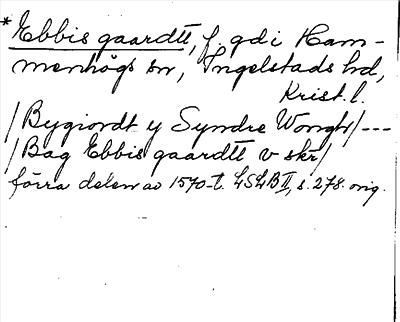 *Ebbis gaardtt, f. gd i Ham-
menhögs sn, Ingelstads hd,
Krist. l.
/Bygiordt y Syndre Wongh/---
/Bag Ebbis gaardtt v skr/
förra delen av 1570-t. LSLB II, s. 278. orig.